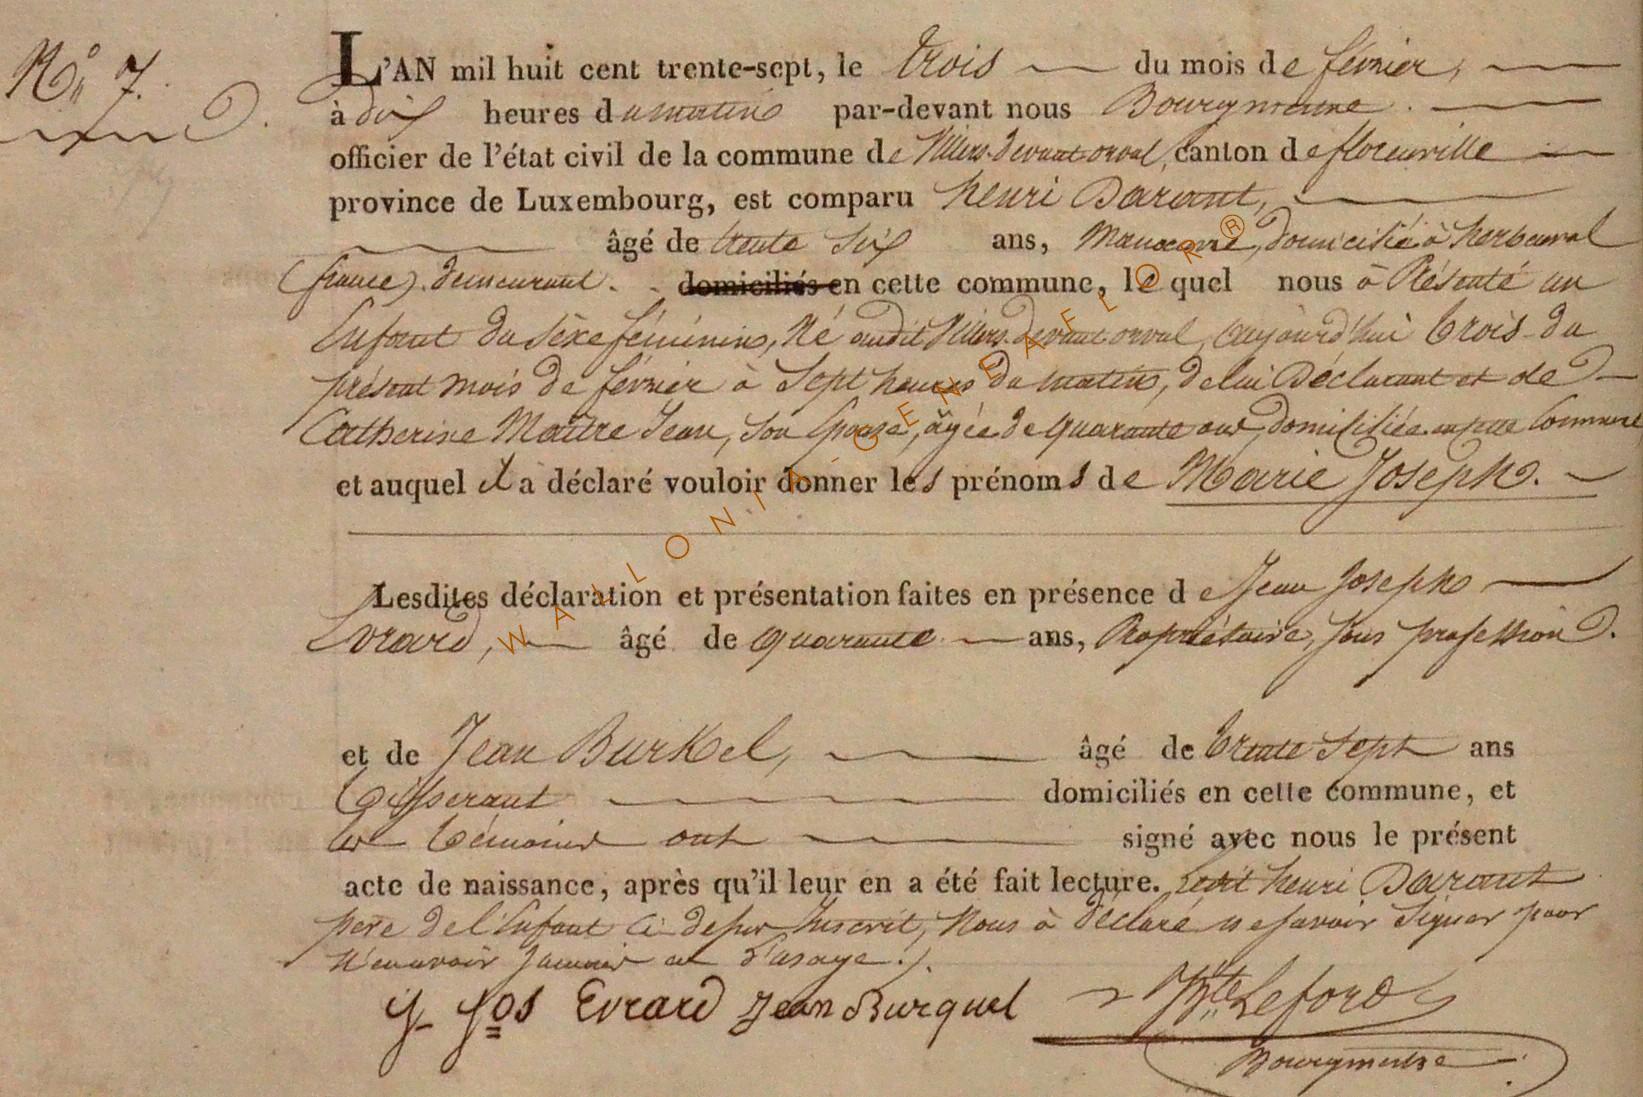 No 7.
L'AN mil huit cent trente-sept, le trois du mois de février,
à dix heures du matin par-devant nous Bourgmestre.
officier de l'état civil de la commune de Villers-devant orval, canton de florenville
province de Luxembourg, est comparu henri Darant,
âgé de trente six ans, Manoeuvre, domicilié à herbeuval
(france). demeurant. domiciliés en cette commune, le quel nous à Présenté un
Enfant du séxe féminin, Né audit Villers-devant orval, aujourd'hui trois du
présent mois de février à Sept heures du matin, de lui Déclarant et de
Catherine Maitre Jean, son Epouse, âgée de quarante ans, domiciliée en cette Commune
et auquel il a déclaré vouloir donner les prénoms de Marie Joseph.
Lesdites déclaration et présentation faites en présence de Jean Joseph
Evrard, âgé de quarante ans, Propriétaire, sans profession.
et de Jean Burkel, âgé de trente sept ans
tisserant domiciliés en cette commune, et
les témoins ont signé avec nous le présent
acte de naissance, après qu'il leur en a été fait lecture. Ledit henri Darant
père de l'Enfant Ci-dessus Inscrit, Nous à déclaré ne savoir Signer pour
N'en avoir Jamais eu L'usage./.
J- Jos Evrard Jean Burquel Bte Leford
Bourgmestre
WALLONIA-GENEAFLOR®